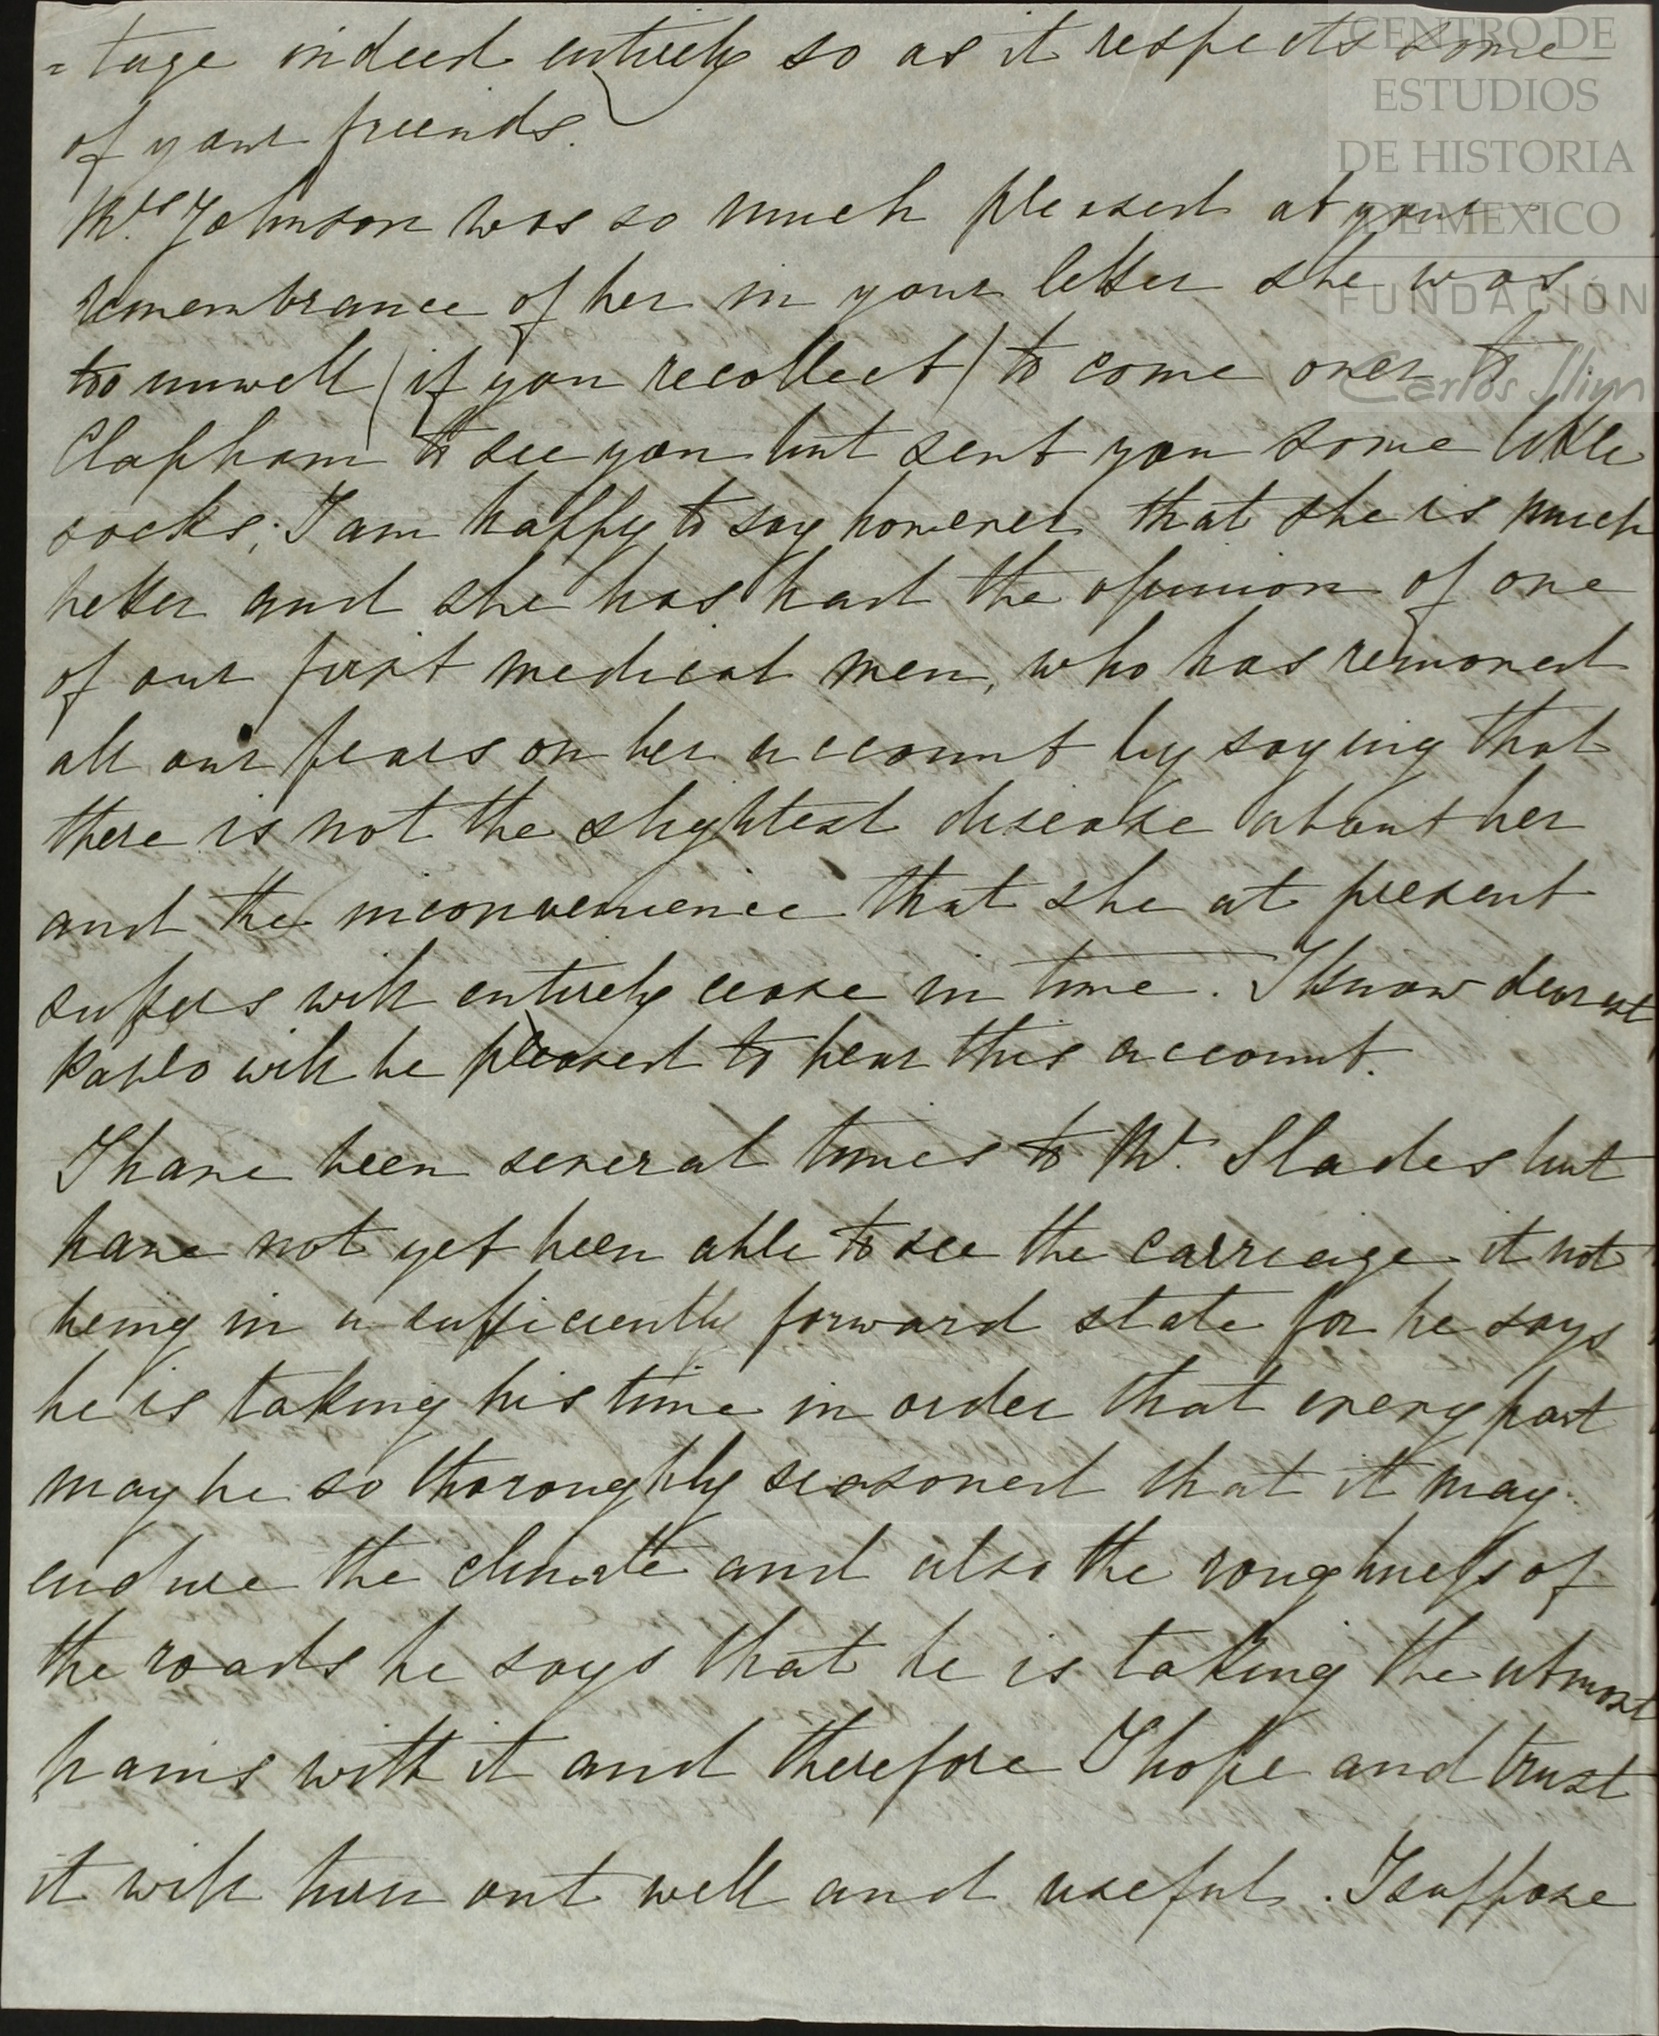 = tage indeed entirely so as it respects some
of your friends.
Mrs. Johnson was so much pleased at your
remembrance of her in your letter she was
too unwell (if you recollect) to come over to
Clapham to see you but sent you some little
socks; I am happy to say however that she is much
better and she has had the opinion of one
of our first medical men, who has removed
all our fears on her account by saying that
there is not the slightest disease about her
and the inconvenience that she at present
suffers will entirely cease in time. I know dearest
Pablo will be pleased to hear this account.
I have been several times to Mr. Slades but
have not yet been able to see the carriage it not
being in a sufficiently forward state for he says
he is taking his time in order that every part
may be so thoroughly seasoned that it may
endure the climate and also the roughness of
the roads he says that he is taking the utmost
pains with it and therefore I hope and trust
it will turn out well and useful. I suppose
CENTRO DE
ESTUDIOS
DE HISTORIA
DE MEXICO
FUNDACIÓN
Carlos Slim